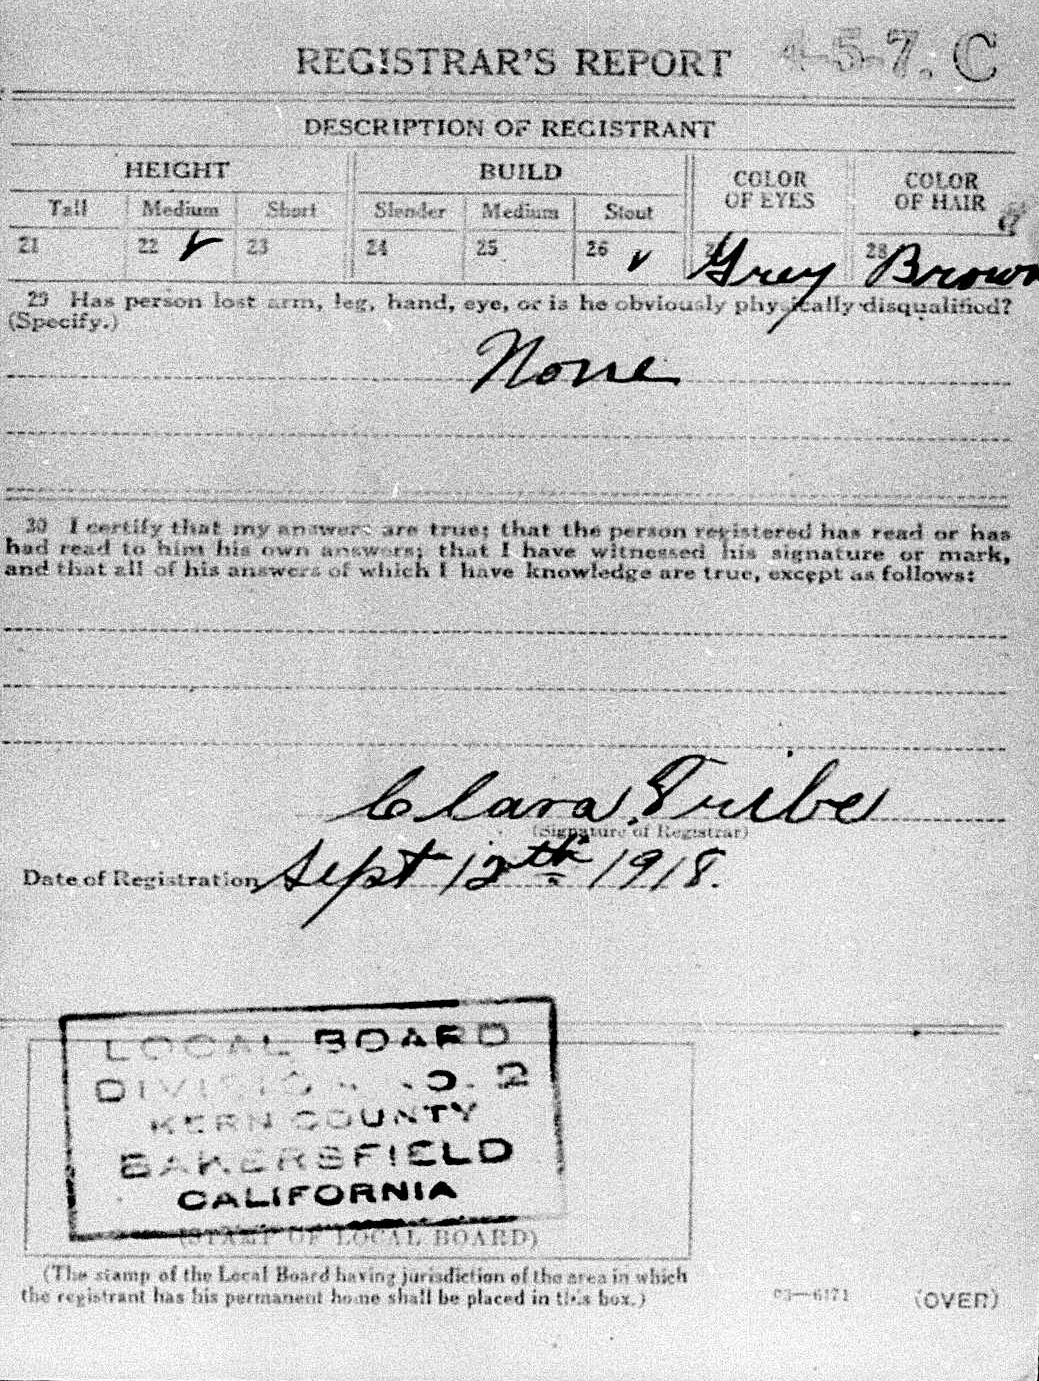 REGISTRAR'S REPORT 4-5-7. C
DESCRIPTION OF REGISTRANT
HEIGHT BUILD COLOR OF EYES COLOR OF HAIR
Tall Medium Short Slender Medium Stout
21 22 ✓ 23 24 25 26 ✓ Grey 28 Brown
29 Has person lost arm, leg, hand, eye, or is he obviously physically disqualified?
(Specify.)
None
30 I certify that my answers are true; that the person registered has read or has
had read to him his own answers; that I have witnessed his signature or mark,
and that all of his answers of which I have knowledge are true, except as follows:
Clara. Tribe
(Signature of Registrar)
Date of Registration Sept 12th 1918.
LOCAL BOARD
DIVISION NO. 2
KERN COUNTY
BAKERSFIELD
CALIFORNIA
(STAMP OF LOCAL BOARD)
(The stamp of the Local Board having jurisdiction of the area in which
the registrant has his permanent home shall be placed in this box.)
03—6171 (OVER)